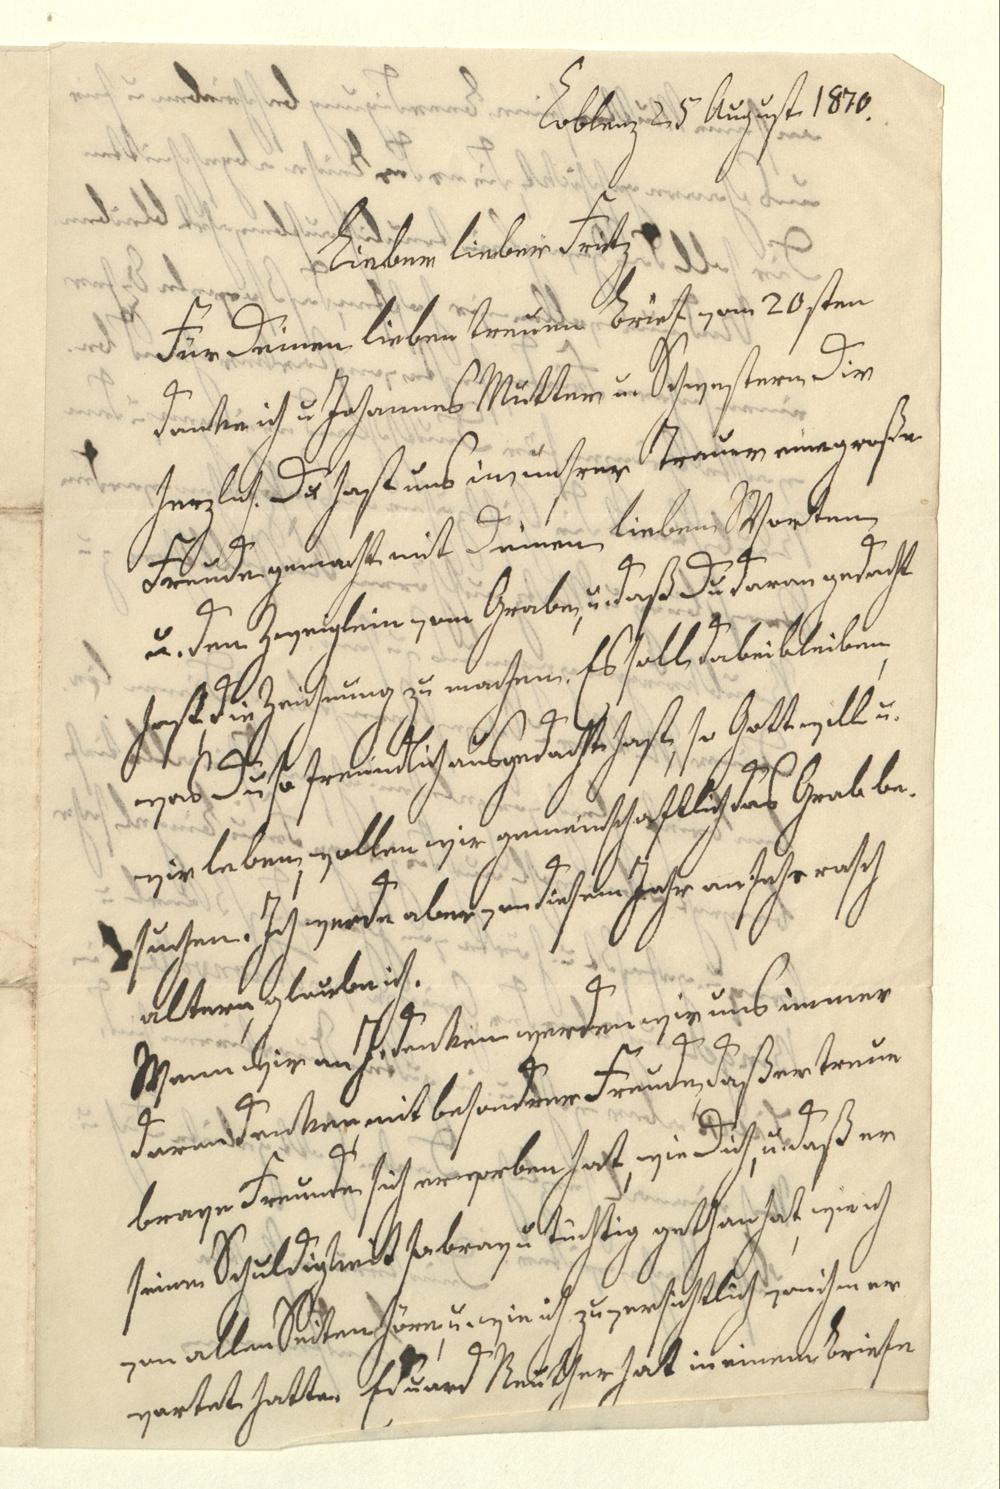 Coblenz 25 August 1870.
Lieber lieber Fritz
Für Deinen lieben treuen Brief vom 20sten
danke ich u Johannes Mutter u. Schwestern Dir
herzlich. Du hast uns in unsrer Trauer eine große
Freude gemacht mit Deinen lieben Worten
u. den Zweiglein vom Grabe, u. daß Du daran gedacht
hast, die Zeichnung zu machen. Es soll dabei bleiben,
was Du so freundlich ausgedacht hast, so Gott will u.
wir leben, wollen wir gemeinschaftlich das Grab be-
suchen. Ich werde aber von diesem Jahr an sehr rasch
altern, glaube ich.
Wenn wir an J. denken werden wir uns immer
daran denken, mit besondrer Freude, daß er treue
brave Freunde sich erworben hat, wie Dich, u. daß er
seine Schuldigkeit so brav u tüchtig gethan hat, wie ich
von allen Seiten höre, u. wie ich zuversichtlich von ihm er
wartet hatte. Eduard Reuther hat in einem Briefe